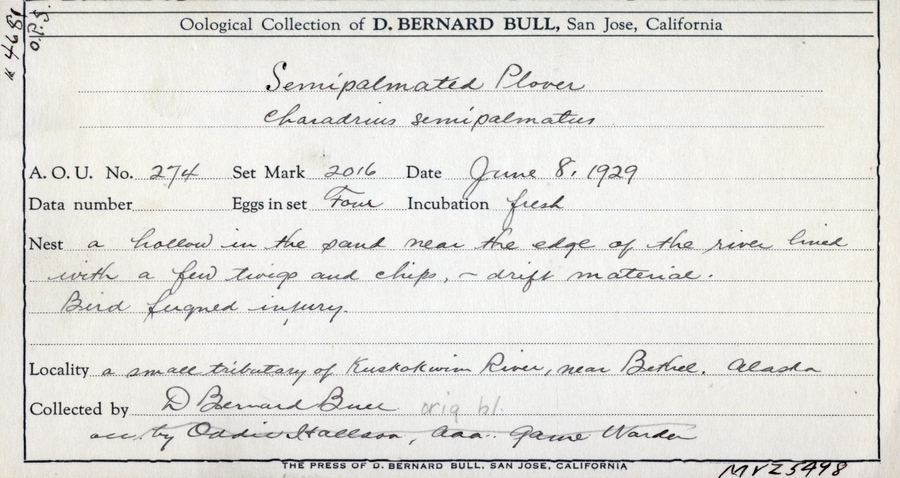 # 4681
O.R.S.
Oological Collection of D. BERNARD BULL, San Jose, California
Semipalmated Plover
Charadrius semipalmatus
A. O. U. No. 274 Set Mark 2016 Date June 8, 1929
Data number Eggs in set Four Incubation fresh
Nest a hollow in the sand near the edge of the river lined
with a few twigs and chips, – drift material.
Bird feigned injury.
Locality a small tributary of Kuskokwim River, near Bethel. Alaska
Collected by D Bernard Bull orig bl.
by Game Warden
THE PRESS OF D. BERNARD BULL, SAN JOSE, CALIFORNIA
MVZ 5498